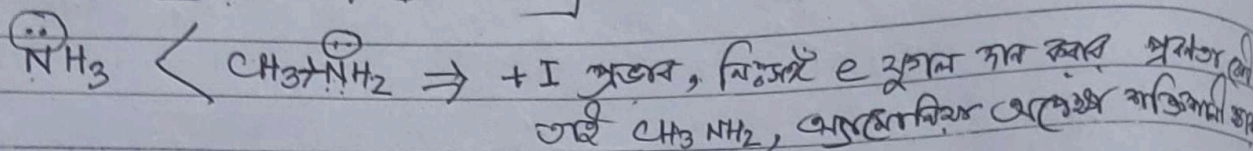 N̈H₃ < CH₃→N̈H₂ ⇒ +I প্রভাব, নিঃসঙ্গ e যুগল দান করার প্রবণতা
তাই CH₃NH₂, অ্যামোনিয়া অপেক্ষা শক্তিশালী